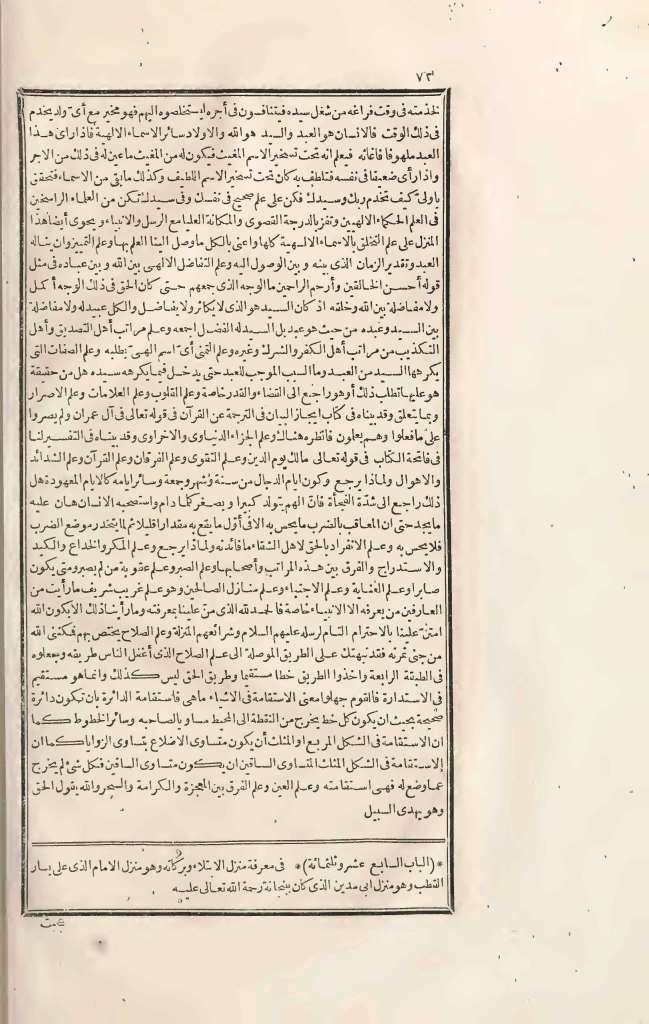 ٧٣
لخدمته فى وقت فراغه من شغل سيده فيتنافسون فى أجره ليستخلصوه اليهم فهو مخير مع أى ولد يخدم
فى ذلك الوقت فالانسان هو العبد والسيد هو الله والاولاد سائر الاسماء الالهية فاذا رأى هذا
العبد ملهوفا فاغاثه فيعلم انه تحت تسخير الاسم المغيث فيكون له من المغيث ما عين له فى ذلك من الاجر
واذا رأى ضعيفا فى نفسه فتلطف به كان تحت تسخير الاسم اللطيف وكذلك ما بقى من الاسماء فتحقق
ياولى كيف تخدم ربك وسيدك فكن على علم صحيح فى نفسك وفى سيدك تكن من العلماء الراسخين
فى العلم الحكماء الالهيين وتفز بالدرجة القصوى والمكانة العليا مع الرسل والانبياء ويحوى أيضا هذا
المنزل على علم التخلق بالاسماء الالهية كلها واعنى بالكل ما وصل الينا العلم بها وعلم التمييز وان يناله
العبد وتقدير الزمان الذى بينه وبين الوصول اليه وعلم التفاضل الالهى بين الله وبين عباده فى مثل
قوله أحسن الخالقين وأرحم الراحمين ما الوجه الذى جمعهم حتى كان الحق فى ذلك الوجه أكمل
ولا مفاضلة بين الله وخلقه اذ كان السيد هو الذى لا يكاثر ولا يفاضل والكل عبيد له ولا مفاضلة
بين السيد وعبده من حيث هو عبد بل السيد له الفضل اجمعه وعلم مراتب أهل التصديق وأهل
التكذيب من مراتب أهل الكفر والشرك وغيره وعلم التمنى أى اسم الهى يطلبه وعلم الصفات التى
يكرهها السيد من العبد وما السبب الموجب للعبد حتى يدخل فيما يكرهه سيده هل من حقيقة
هو عليها تطلب ذلك أو هو راجع الى القضاء والقدر خاصة وعلم القلوب وعلم العلامات وعلم الاصرار
وبما يتعلق وقد بيناه فى كتاب ايجاز البيان فى الترجمة عن القرآن فى قوله تعالى فى آل عمران ولم يصروا
على ما فعلوا وهم يعلمون فانظره هنالك وعلم الجزاء الدنياوى والاخراوى وقد بيناه فى التفسير لنا
فى فاتحة الكتاب فى قوله تعالى مالك يوم الدين وعلم التقوى وعلم الفرقان وعلم القرآن وعلم الشدائد
والاهوال ولماذا يرجع وكون ايام الدجال من سنة وشهر وجمعة وسائر ايامه كالايام المعهودة هل
ذلك راجع الى شدة الفجأة فان الهم يتولد كبيرا ويصغر كلما دام واستصحبه الانسان هان عليه
ما يجد حتى ان المعاقب بالضرب ما يحس به الا فى أول ما يقع به مقدارا قليلا ثم لما يتخدر موضع الضرب
فلا يحس به وعلم الانفراد بالحق لاهل الشقاء ما فائدته ولماذا يرجع وعلم المكر والخداع والكيد
والاستدراج والفرق بين هذه المراتب وأصحابها وعلم الصبر وعلم عقوبة من لم يصبر ومتى يكون
صابرا وعلم العناية وعلم الاجتباء وعلم منازل الصالحين وهو علم غريب شريف ما رأيت من
العارفين من يعرفه الا الانبياء خاصة فالحمد لله الذى من علينا بمعرفته وما رأينا ذلك الا لكون الله
امتن علينا بالاحترام التام لرسله عليهم السلام وشرائعهم المنزلة وعلم الصلاح يختص بهم فمكننى الله
من جنى ثمرته فقد نبهتك على الطريق الموصلة الى علم الصلاح الذى أغفل الناس طريقه وجعلوه
فى الطبقة الرابعة واخذوا الطريق خطا مستقيما وطريق الحق ليس كذلك وانما هو مستقيم
فى الاستدارة فالقوم جهلوا معنى الاستقامة فى الاشياء ما هى فاستقامة الدائرة بان تكون دائرة
صحيحة بحيث ان يكون كل خط يخرج من النقطة الى المحيط مساويا لصاحبه وسائر الخطوط كما
ان الاستقامة فى الشكل المربع او المثلث أن يكون متساوى الاضلاع بتساوى الزوايا كما ان
الاستقامة فى الشكل المثلث المتساوى الساقين ان يكون متساوى الساقين فكل شئ لم يخرج
عما وضع له فهى استقامته وعلم العين وعلم الفرق بين المعجزة والكرامة والسحر والله يقول الحق
وهو يهدى السبيل
* (الباب السابع عشر وثلثمائة) * فى معرفة منزل الابتلاء وبركاته وهو منزل الامام الذى على يسار
القطب وهو منزل ابى مدين الذى كان ببجاية رحمة الله تعالى عليه